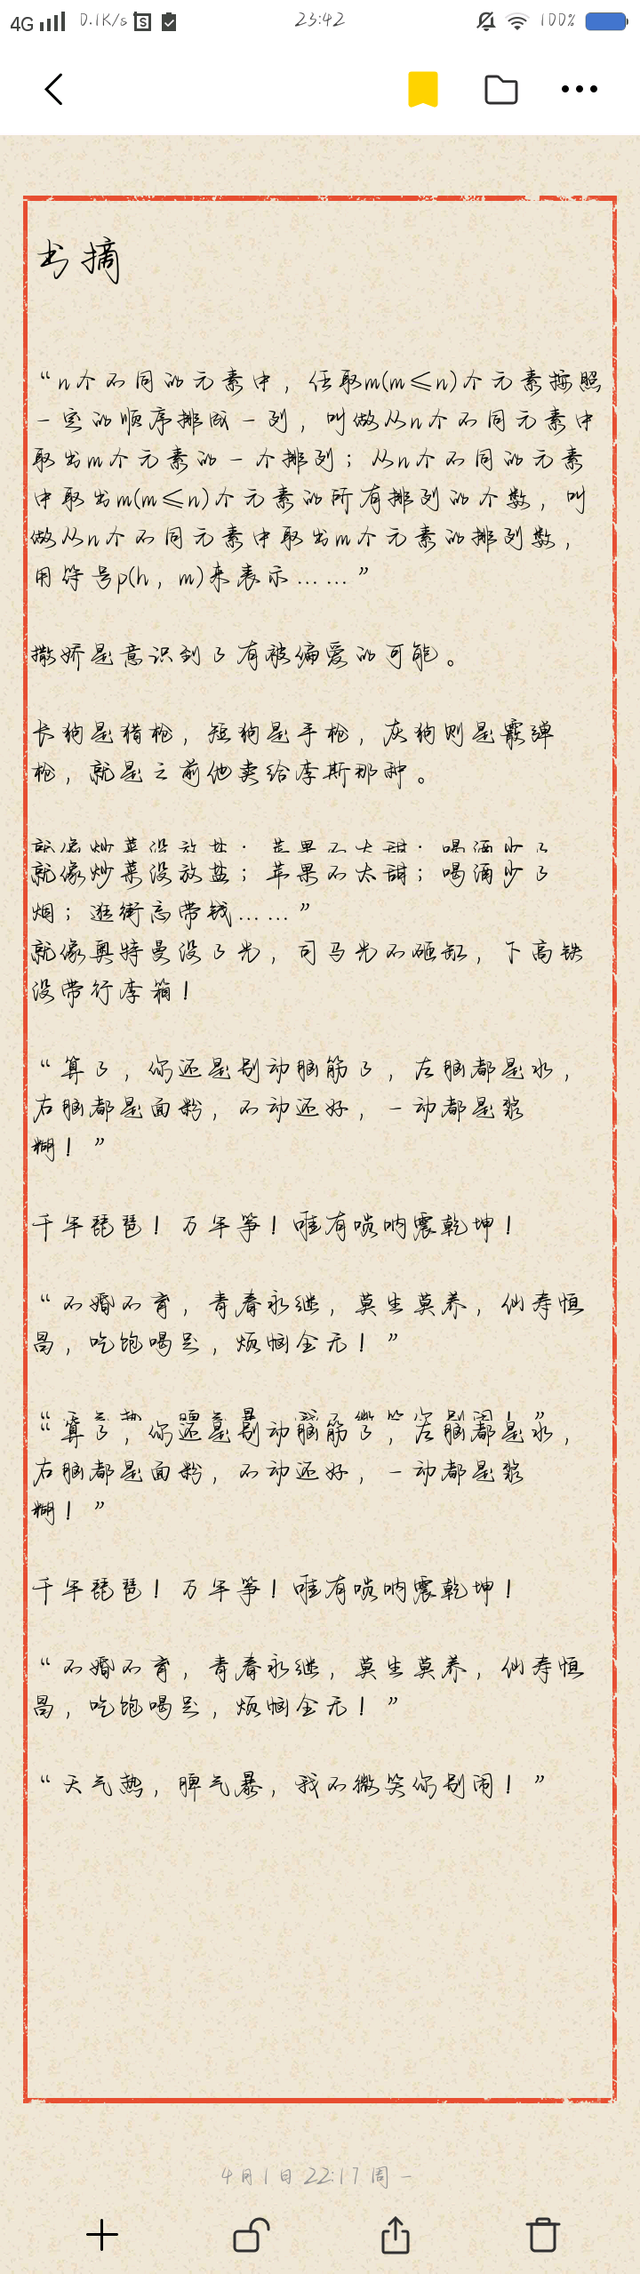 4G 0.1K/s 23:42 100%
书摘
“n个不同的元素中，任取m(m≤n)个元素按照
一定的顺序排成一列，叫做从n个不同元素中
取出m个元素的一个排列；从n个不同的元素
中取出m(m≤n)个元素的所有排列的个数，叫
做从n个不同元素中取出m个元素的排列数，
用符号p(h，m)来表示……”
撒娇是意识到了有被偏爱的可能。
长狗是猎枪，短狗是手枪，灰狗则是霰弹
枪，就是之前他卖给李斯那种。
就像炒菜没放盐；苹果不太甜；喝酒少了
就像炒菜没放盐；苹果不太甜；喝酒少了
烟；逛街忘带钱……”
就像奥特曼没了光，司马光不砸缸，下高铁
没带行李箱！
“算了，你还是别动脑筋了，左脑都是水，
右脑都是面粉，不动还好，一动都是浆
糊！”
千年琵琶！万年筝！唯有唢呐震乾坤！
“不婚不育，青春永继，莫生莫养，仙寿恒
昌，吃饱喝足，烦恼全无！”
“算了，你还是别动脑筋了，左脑都是水，
右脑都是面粉，不动还好，一动都是浆
糊！”
千年琵琶！万年筝！唯有唢呐震乾坤！
“不婚不育，青春永继，莫生莫养，仙寿恒
昌，吃饱喝足，烦恼全无！”
“天气热，脾气暴，我不微笑你别闹！”
4月1日 22:17 周一